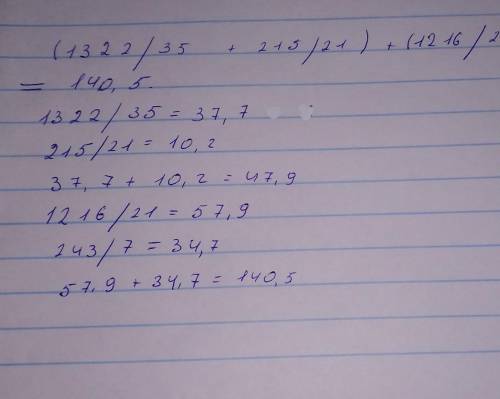 (1322/35 + 215/21) + (1216/2
= 140,5.
1322/35 = 37,7
215/21 = 10,2
37,7 + 10,2 = 47,9
1216/21 = 57,9
243/7 = 34,7
57,9 + 34,7 = 140,5